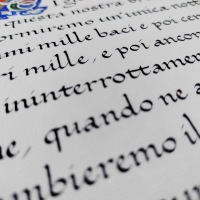 questa nostra br
ormiremo un'unica nott
mi mille baci e poi cen
ri mille, e poi ancor
ininterrottame
e, quando ne a
mbieremo il
un